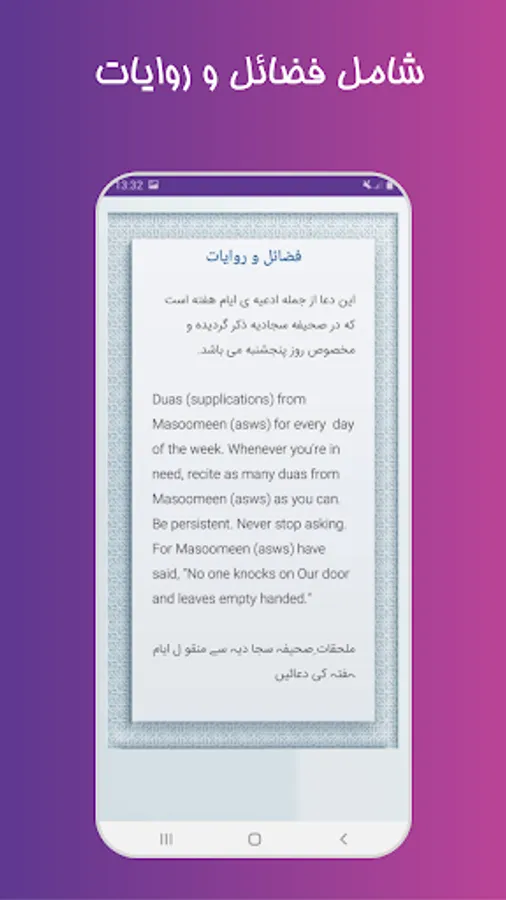 شامل فضائل و روایات
13:32
فضائل و روایات
این دعا از جمله ادعیه ی ایام هفته است
که در صحیفه سجادیه ذکر گردیده و
مخصوص روز پنجشنبه می باشد.
Duas (supplications) from
Masoomeen (asws) for every day
of the week. Whenever you're in
need, recite as many duas from
Masoomeen (asws) as you can.
Be persistent. Never stop asking.
For Masoomeen (asws) have
said, "No one knocks on Our door
and leaves empty handed."
ملحقات ِصحیفہ سجا دیہ سے منقو ل ایام
ہفتہ کی دعائیں